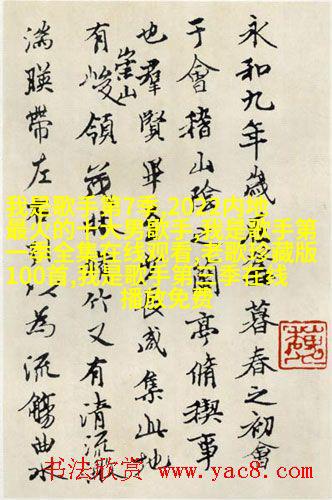 永和九年歲暮春之初會
于會稽山陰之蘭亭脩稧事
也羣賢畢咸集此地
有崇山峻領茂竹又有清流激
湍暎帶左以為流觴曲水
我是歌手第7季,2022内地
最火的十大男歌手,我是歌手第
一季全集在线观看,老歌珍藏版
100首,我是歌手第季在线
播放免费
书法欣赏 www.yac8.com